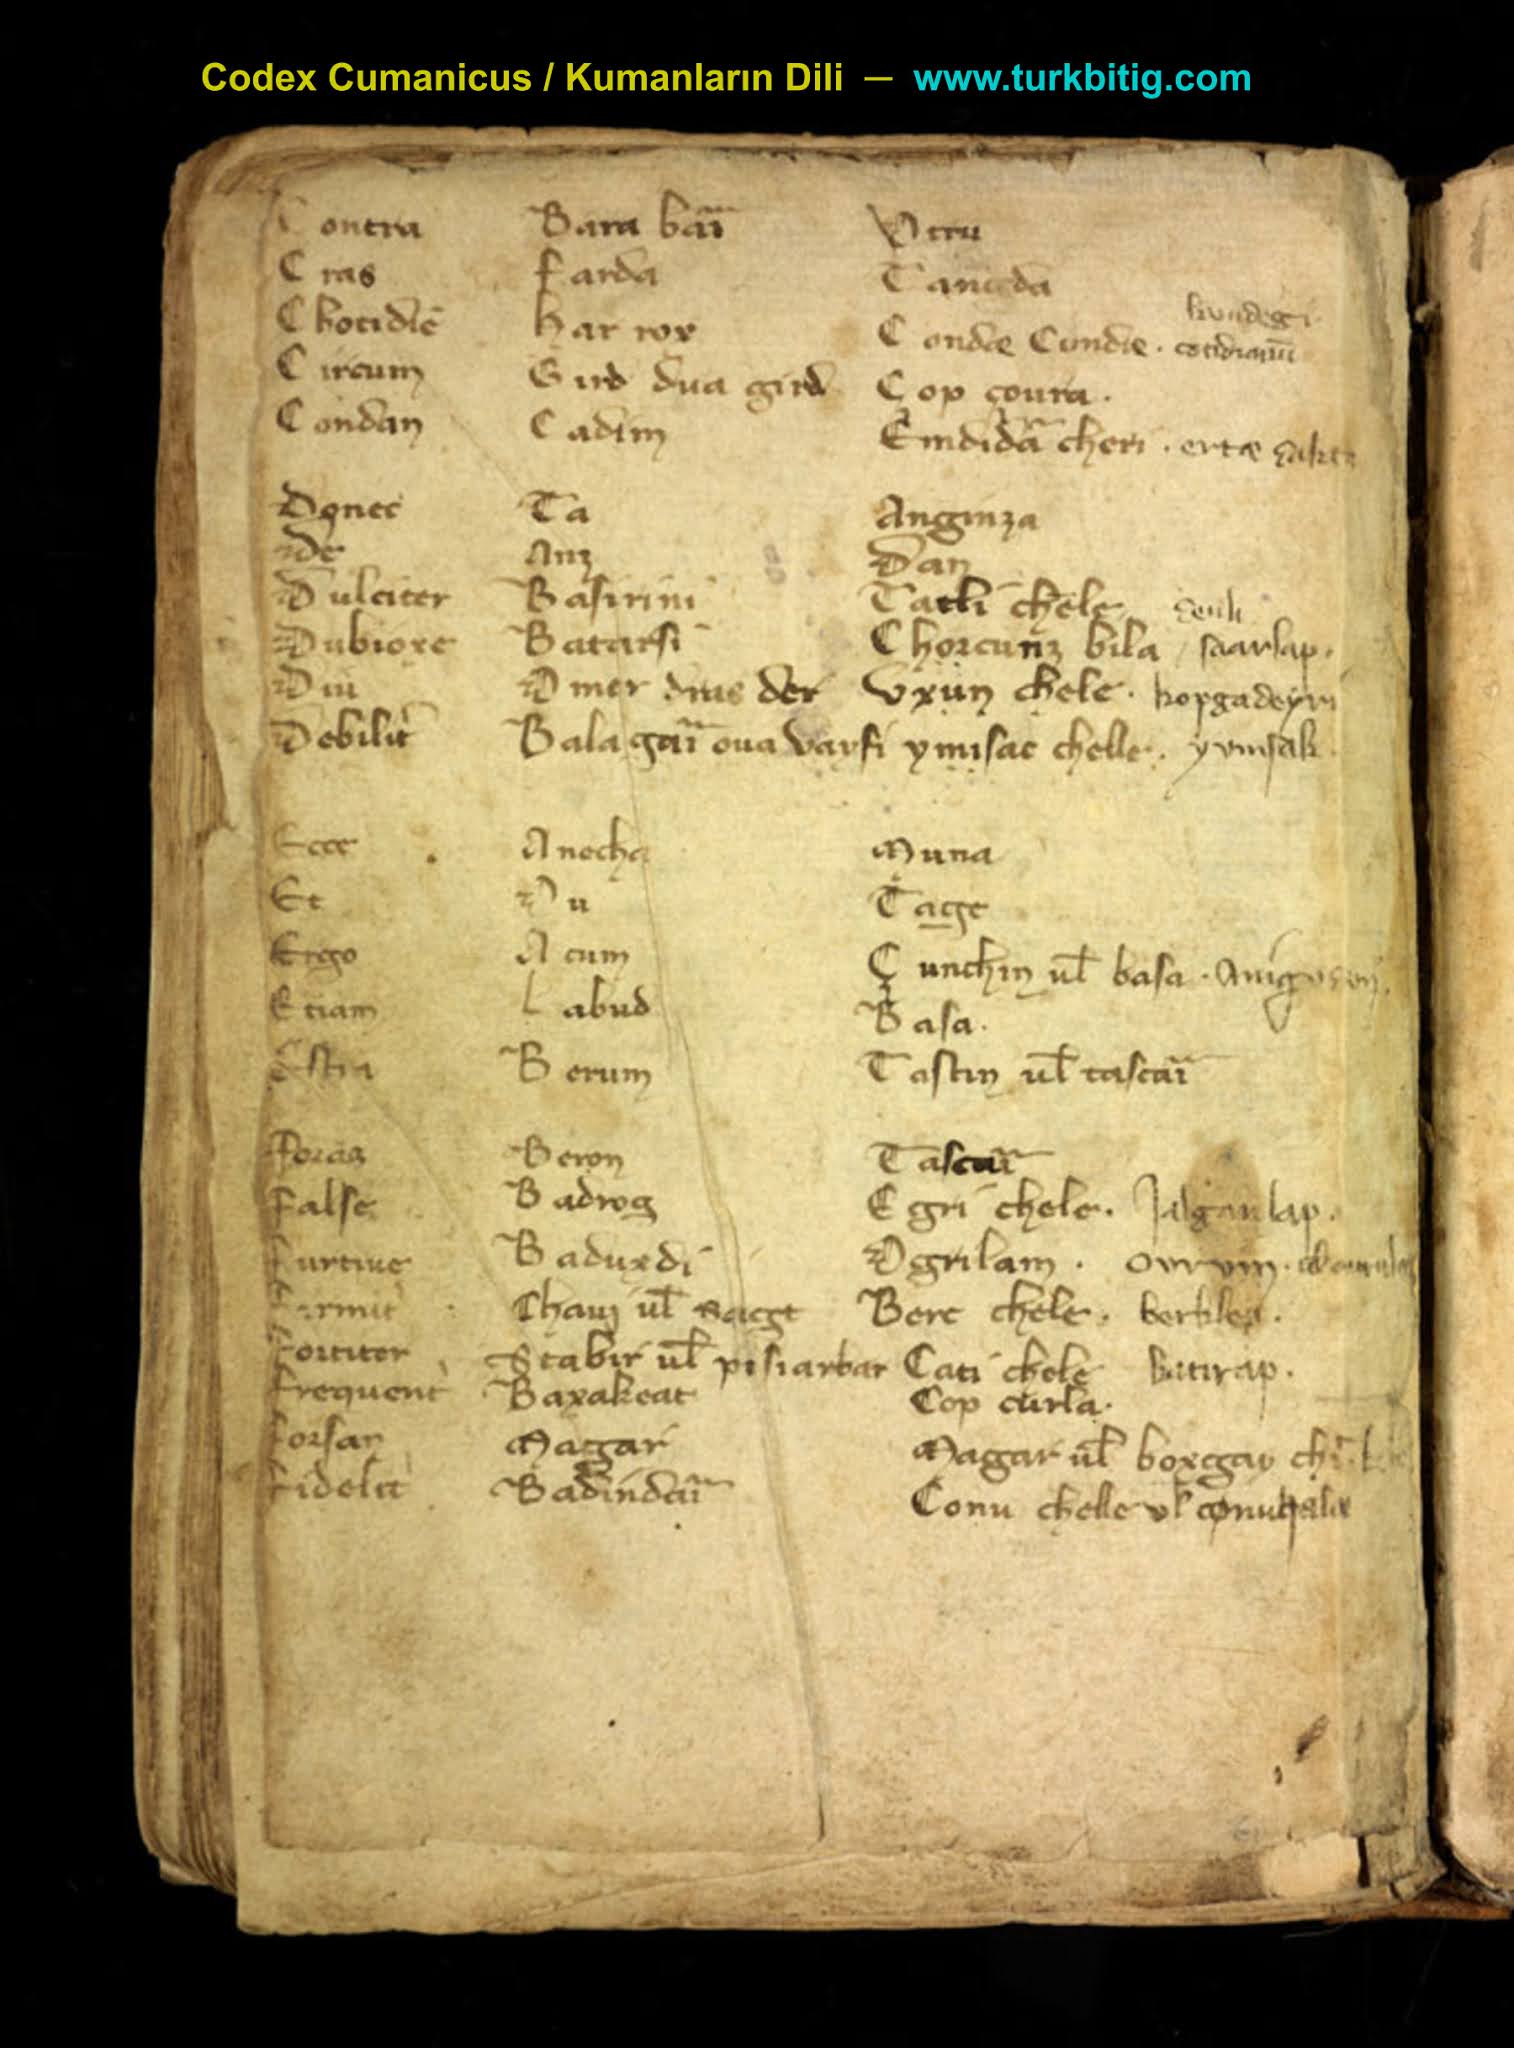 Codex Cumanicus / Kumanların Dili — www.turkbitig.com
Contra Bara bār Vtru
Cras Farda Tanda
kundegi
Chotidiē Har rox Condæ Cundæ . cotidianū
Circum Gird dua gird Cop çoura .
Condan Cadim Emdidā cheri . ertæ
Donec Ta Anginza
De Anz Dan
Dulciter Basirini Tatli chele
Dubiose Batarsi Chorcunz bila saarlap .
Diu Omer dras der Vxun chele . kopgadeyri
Debilit̄ Balagār oua varsi ymisac chelle . yvmsak
Ecce Anecha Muna
Et Vu Tage
Ergo Acum Cunchin ul̄ basa .
Etiam Labud Basa .
Estra Berum Tastin ul̄ tascār
Foras Beron Tascār
False Badrog Egri chele . Jalganlap .
Furtiue Baduxdi Ogrilam . ovrvm .
Firmit̄ Chauj ul̄ sacgt Berc chele . berklep .
Fortiter Stabir ul̄ pisiarbar Cati chele katirap .
Frequent̄ Baxakeat Cop curla .
Forsan Magar Magar ul̄ boxgay chī .
Fidelit̄ Badindār Conu chelle vl̄